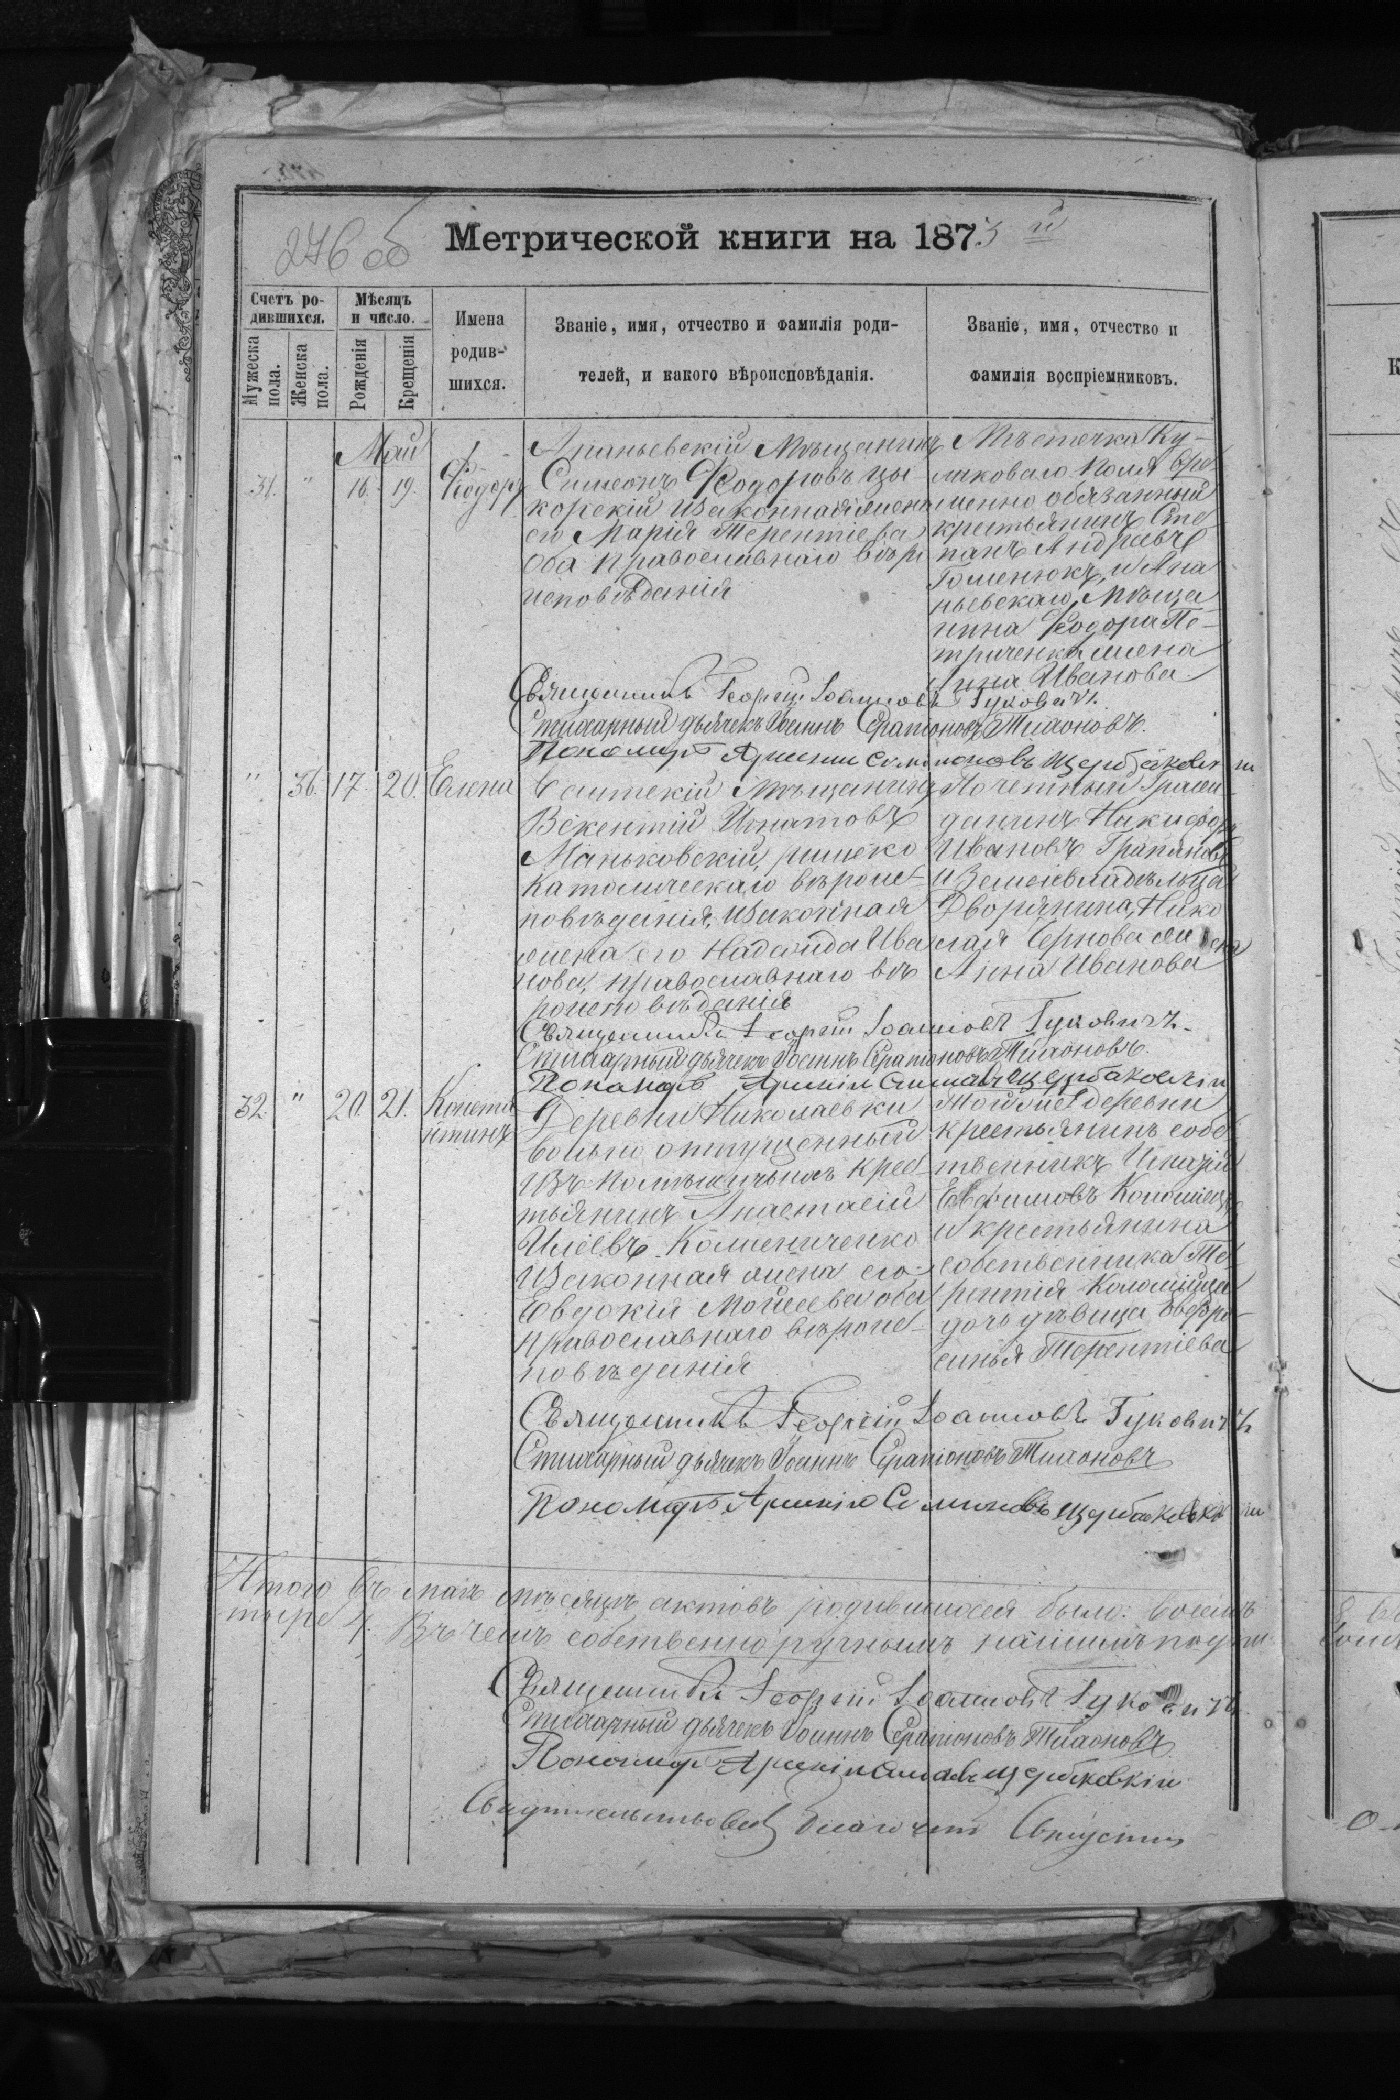 276 об
Метрической книги на 1873 й
Счетъ родившихся.
Мѣсяцъ и число.
Имена родившихся.
Званіе, имя, отчество и фамилія родителей, и какого вѣроисповѣданія.
Званіе, имя, отчество и фамилія воспріемниковъ.
Мужеска пола.
Женска пола.
Рожденія
Крещенія
Май
31. " 16. 19. Феодоръ
Ананьевскій Мѣщанинъ
Симеонъ Феодоровъ Цы
корскій и законная жена
его Марія Терентіева
оба православнаго вѣро
исповѣданія
Мѣстечка Ку-
ликоваго Поля вре
менно обязанный
крестьянинъ Сте
панъ Андреевъ
Гоменюкъ, и Ана
ньевскаго Мѣща
нина Феодора Пе-
триченка жена
Анна Иванова
Священникъ Георгій Іоанновъ Гуковичъ.
Стихарный дьячекъ Іоаннъ Серапіоновъ Тихоновъ.
Пономарь Арсеній Симоновъ Щербаковскій
" 36. 17. 20. Елена
Мѣщанинъ
Викентій Игнатовъ
Маньковскій, римско
католическаго вѣроис-
повѣданія, и законная
жена его Надежда Ива
нова, православнаго вѣ
роисповѣданія
Почетный Граж
данинъ Никифоръ
Ивановъ
и Землевладѣльца
Дворянина, Нико
лая Чернова жена
Анна Иванова
Священникъ Георгій Іоанновъ Гуковичъ.
Стихарный дьячекъ Іоаннъ Серапіоновъ Тихоновъ.
Пономарь Арсеній Симоновъ Щербаковскій
32. " 20. 21. Конста
нтинъ
Деревни Николаевки
вольно отпущенный
изъ помѣщичьихъ крес
тьянинъ Анастасій
Иліевъ
и законная жена его
Евдокія Моисеева оба
православнаго вѣроис-
повѣданія
Той же деревни
крестьянинъ собс
твенникъ Игнатій
Евфимовъ Коломіецъ
и крестьянина
собственника Те
рентія Коломійца
дочь дѣвица Евфро-
синья Терентіева
Священникъ Георгій Іоанновъ Гуковичъ
Стихарный дьячекъ Іоаннъ Серапіоновъ Тихоновъ
Пономарь Арсеній Симоновъ Щербаковскій
Итого въ маѣ мѣсяцѣ актовъ родившихся было:
тыре 4. Въ чемъ собственноручнымъ нашимъ подпи
Священникъ Георгій Іоанновъ Гуковичъ
Стихарный дьячекъ Іоаннъ Серапіоновъ Тихоновъ
Пономарь Арсеній Симоновъ Щербаковскій